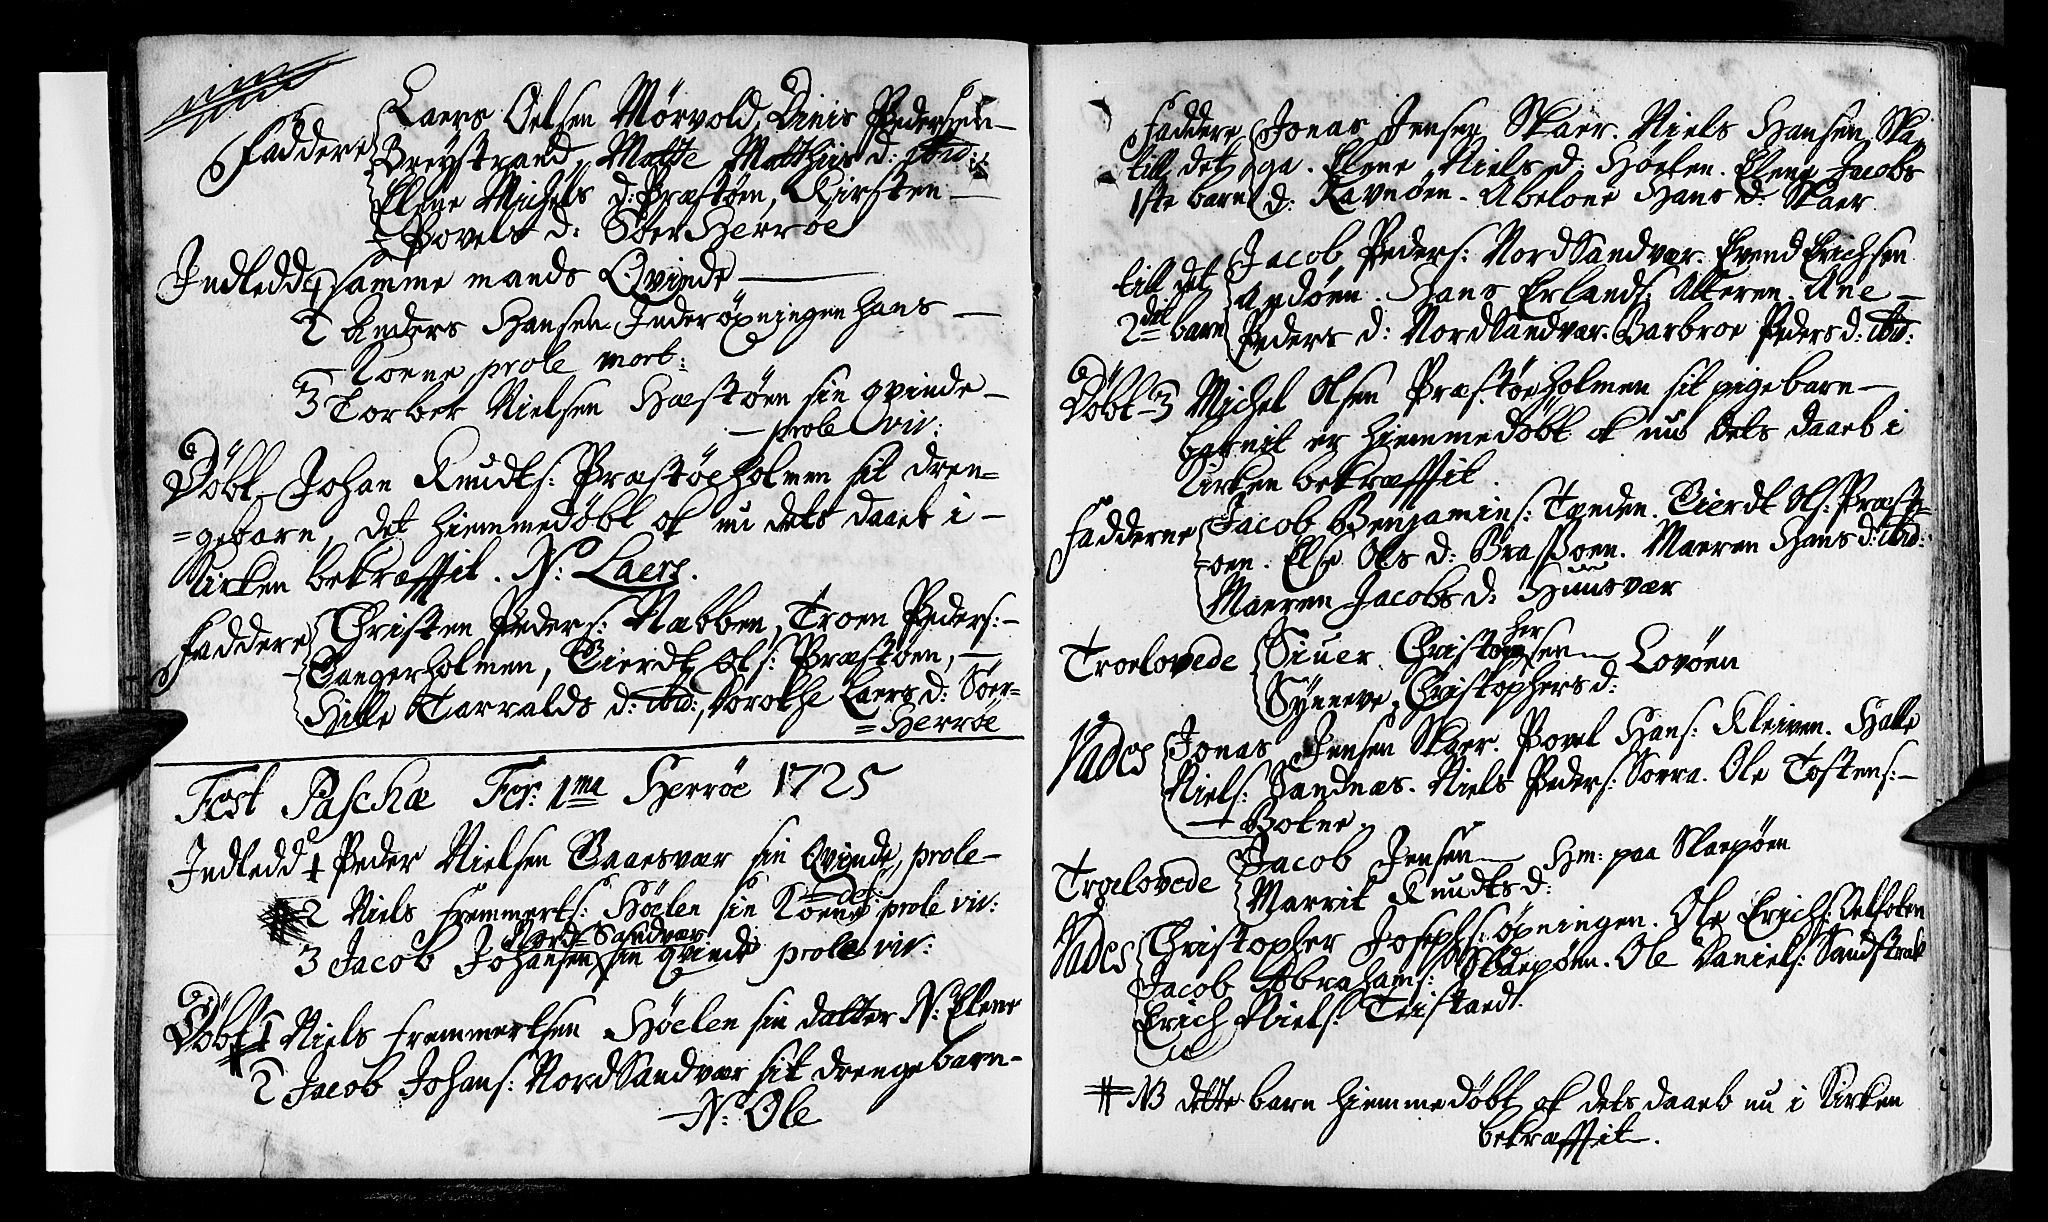 Laers Oelsen Mørvold, Dinis Pedersen
Faddere Breystrand, Malte Matthias d: ibid:
Elene Michels d: Præstøen, Kirsten
Povels d: Søer Herrøe
Indledd 1 samme mands Qvinde
2 Anders Hansen Inderøpningen hans
Kone prole mort:
3 Torber Nielsen Hæstøen sin qvinde
prole viv:
Døbt Johan Knudts: Præstøeholmen sit dren=
=gebarn, det hiemmedøbt ok nu dets daab i
Kirken bekræfftit. N: Laers.
Faddere Christen Peders: Nabben, Troen Peders:
Tangerholmen, Tierdt Ols: Præstøen,
Hille Tarralds d: ibid:, Dorothe Laers d: Søer=
=Herrøe
Fest Paschæ Fer: 1ma Herrøe 1725
Indledd 1 Peder Nielsen Baaesvær sin Qvinde, prole
def:
# 2 Niels Fremmerts: Høelen sin Kone prole viv:
Nord=Sandvær
3 Jacob Johansen sin qvinde prole viv:
Døbt # 1 Niels Fremmertsen Høelen sin datter N: Elene
2 Jacob Johans: NordSandvær sit drengebarn
N: Ole
Faddere Jonas Jensen Skaer. Niels Hansen Ska
till det ga. Elene Niels d: Høelen. Elene Jacobs
1ste barn d: Ravnøen. Abelone Hans d: Skaer
Jacob Peders: NordSandvær. Evend Erichsen
till det Andøen. Hans Erlands: Alteren. Ane
2det barn Peders d: NordSandvær. Barbroe Peders d: ibid:
Døbt 3 Michel Olsen Præstøeholmen sit pigebarn
barnit er hiemmedøbt ok nu dets daab i
Kirken bekræfftit.
Fadderne Jacob Benjamins: Tenden. Tierdt Ols: Præst=
=øen. Else Ols d: Brasøen. Maeren Hans d: ibid:
Maeren Jacobs d: Huusvær
Troelovede Siuer Christophersen Lovøen
Synneve Christophers d:
Vades Jonas Jensen Skaer. Povel Hans: Kleiven. Halle
Niels: Sandnæs. Niels Peders: Sovra. Ole Tostens:
Botne.
Troelovede Jacob Jensen Hm: paa Slaepøen
Marrit Knudts d:
Vades Christopher Josephs: Øpningen. Ole Erichs: Belfoten
Jacob Abrahams: Slaepøen. Ole Daniels: Sandstrak
Erich Niels: Teistaedt.
# NB dette barn hiemmedøbt ok dets daab nu i Kirken
bekræfftit.